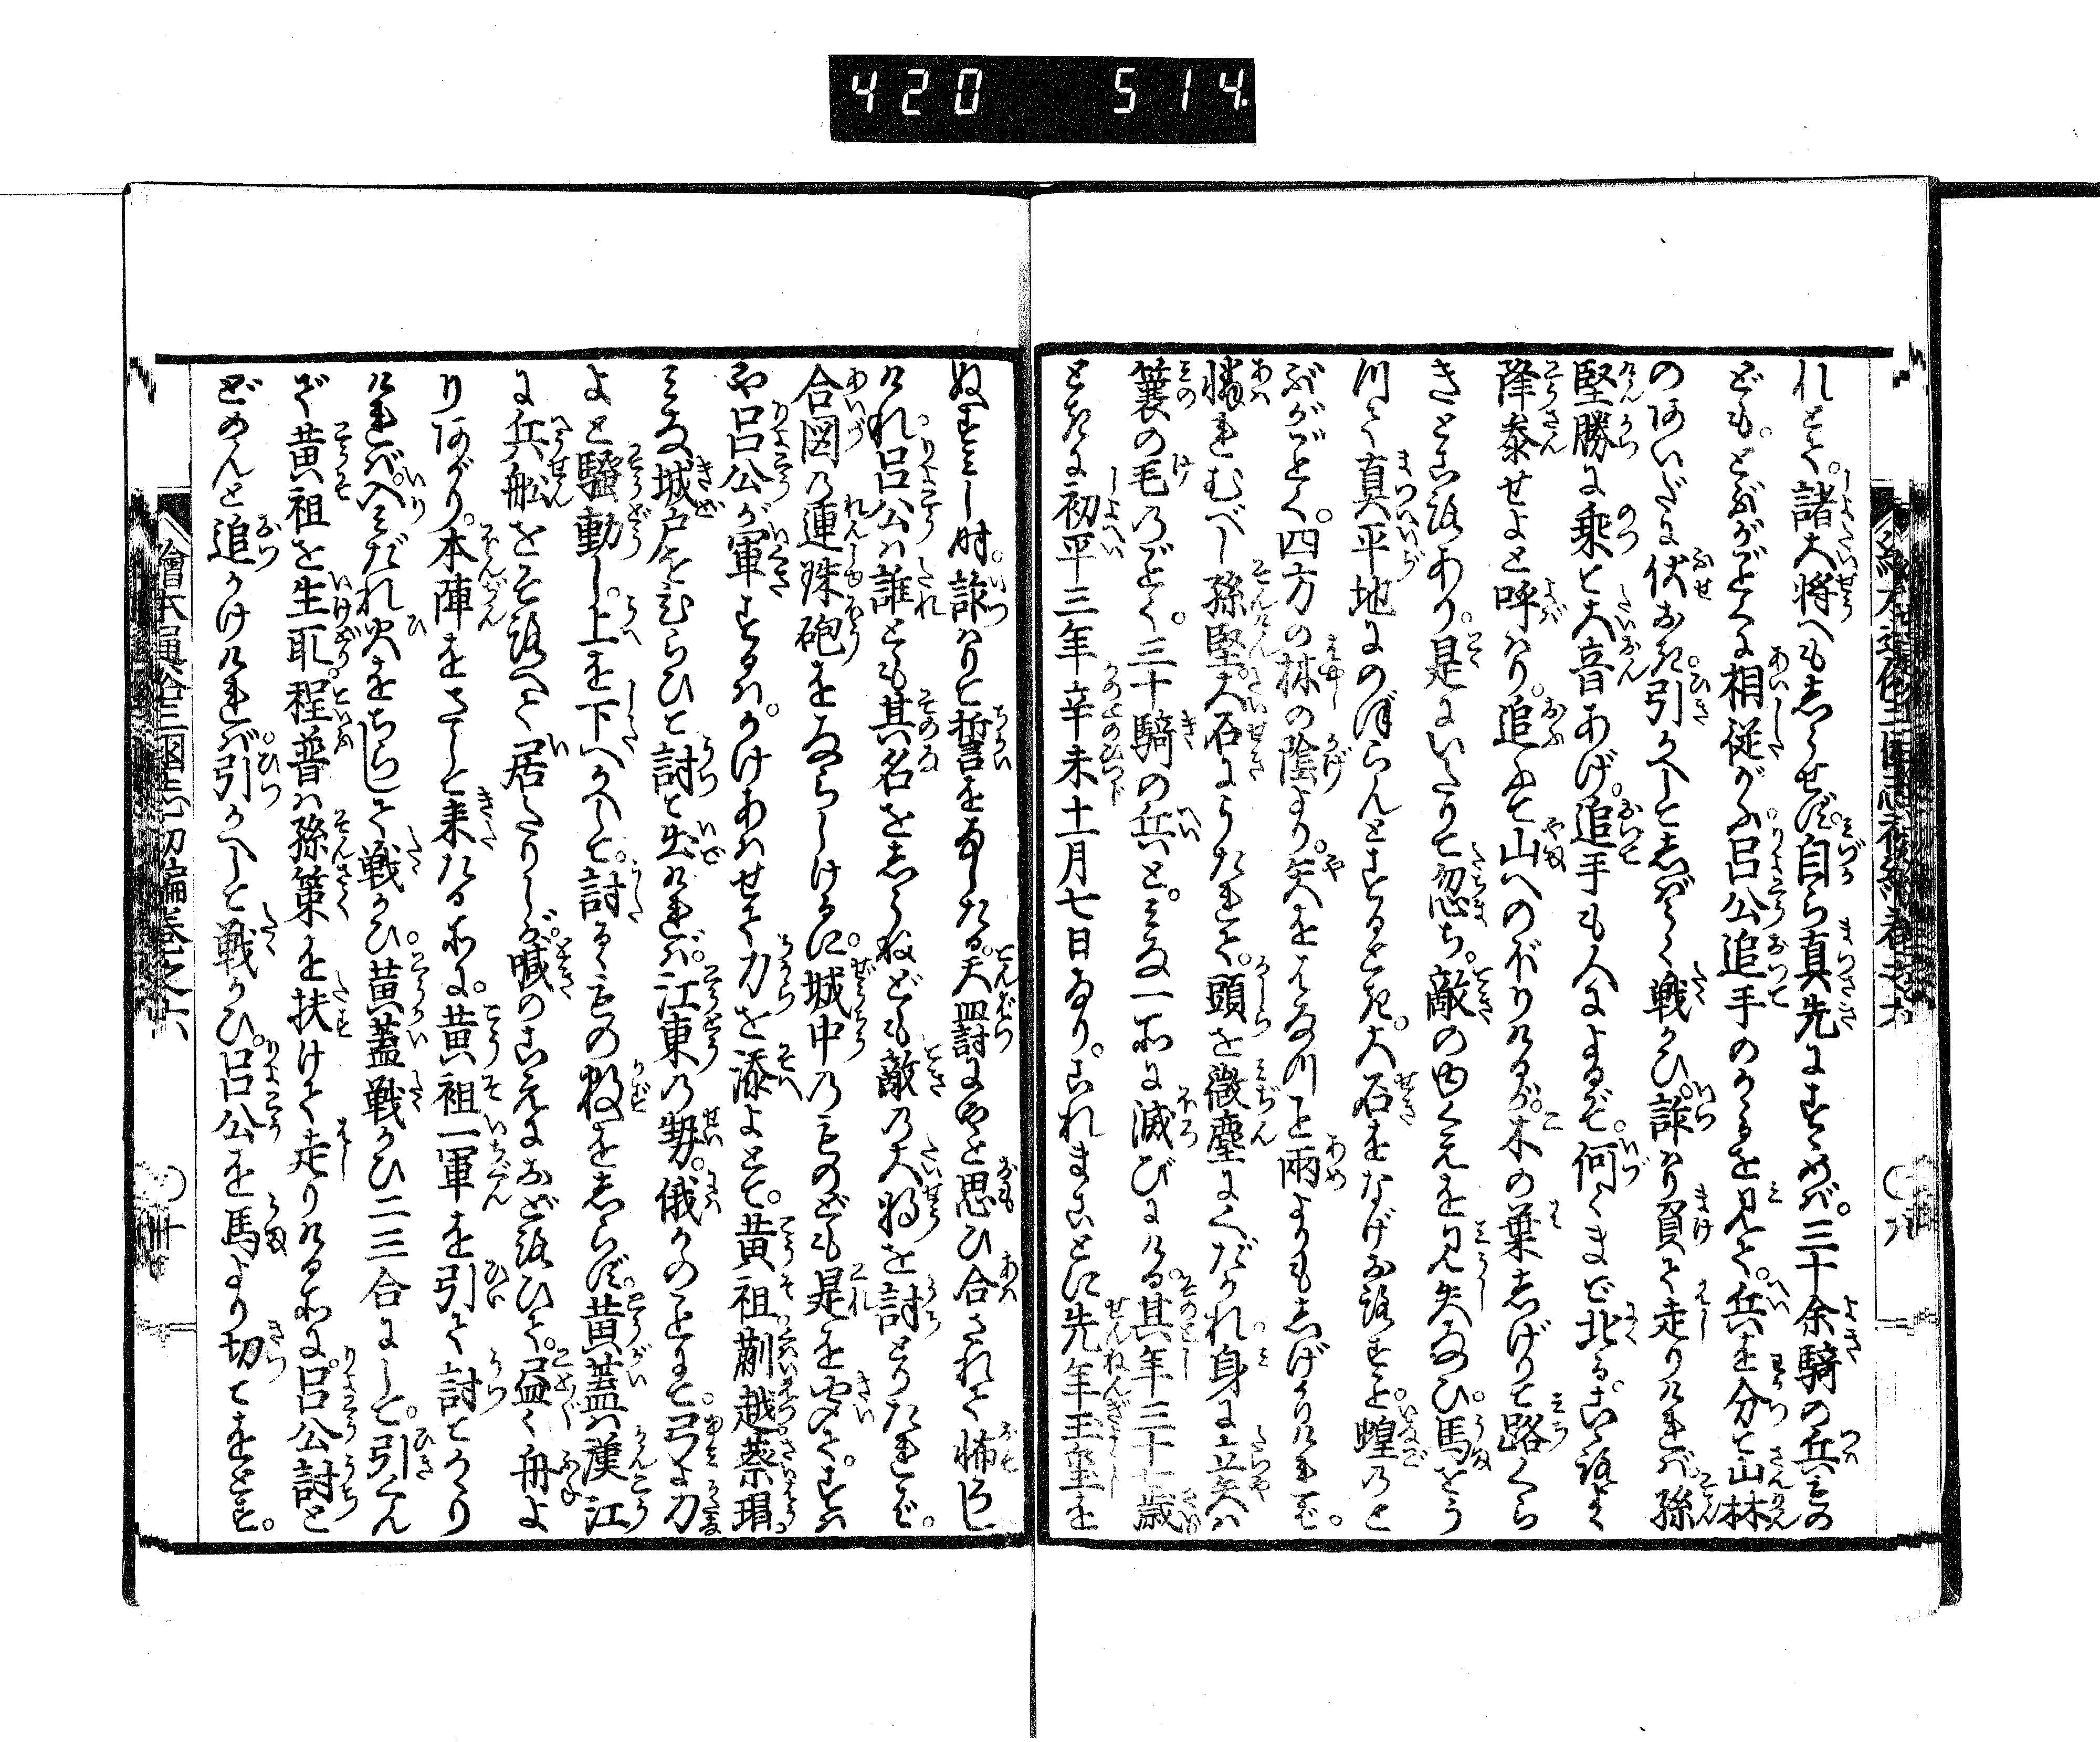 420 514
れとく。諸大将へもしらせず。自ら真先にすゝめば。三十余騎の兵もの
ども。とぶがごとくに相従がふ。呂公追手のかゝるを見て。兵を分て山林
のあいだに伏おき。引かへして。しばらく戦かひ。詐はり負て走りければ。孫
堅勝に乗て大音あげ。追手も人によるぞ。何くまで北る。こゝろよく
降参せよと呼はり。追ふて山へのぼりけるが。木の葉しげりて路くら
きところあり。是にいたりて忽ち。敵の内くえを見失なひ。馬をう
つて真平地にのぼらんとするとき。大石をなげおろすと。蝗のと
ぶがごとく。四方の林の陰より。矢をはなつこと雨よりもしげかりければ。
憐れむべし孫堅。大石にうたれて。頭を微塵にくだかれ。身に立矢は
簑の毛のごとく。三十騎の兵と。みな一所に滅びにける。其年三十七歳
ときに初平三年辛未十一月七日なり。これまことに先年玉璽を
ぬすみし時。詐はりて誓をなしたる。天罰にやと思ひ合されて怖ろし
けれ。呂公は誰とも其名をしらねども敵の大将を討とりたれば。
合図の連珠砲をならしけるに。城中のものども是を聞て。すは
や呂公が軍するは。かけあはせて力を添よとて。黄祖。蒯越。蔡瑁。
みな城戸をひらひて討て出ければ。江東の勢。俄かのことにて。弓よ刀
よと騒動し。上を下へかへして。討るゝもの数をしらず。黄蓋は漢江
に兵船をそろへて居たりしが。喊のこえにおどろひて。益々舟よ
りあがり。本陣をさして来けるところに。黄祖一軍を引て討てかゝり
ければ。入みだれ火をちらして戦かひ。黄蓋戦かひ二三合にして。引くん
で黄祖を生取。程普は孫策を扶けて走りけるところに。呂公討と
どめんと追かけければ。引かへして戦かひ。呂公を馬より切ておとす。
繪本通俗三國志初編巻之六